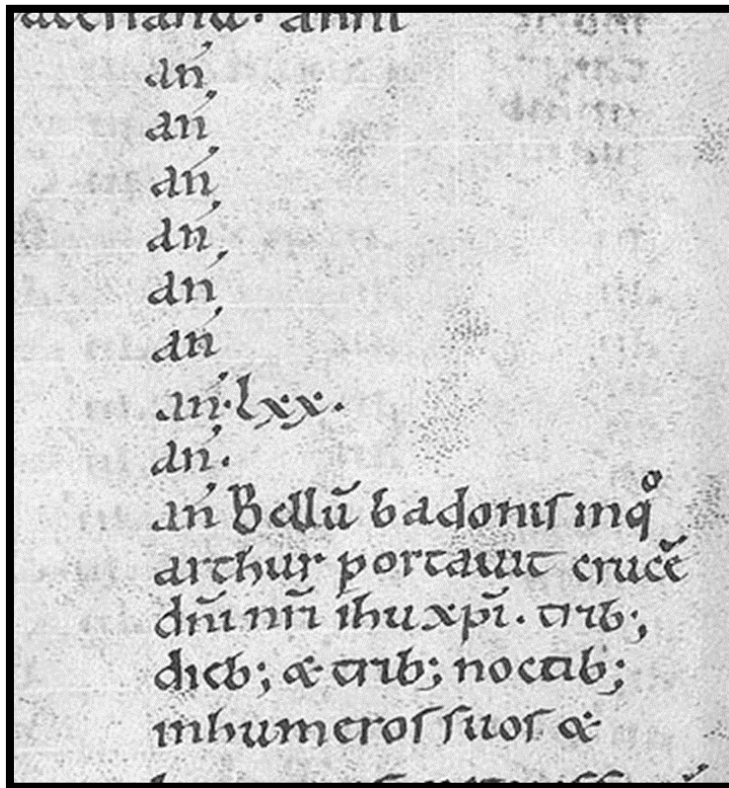 an̄
an̄
an̄
an̄
an̄
an̄
an̄·lxx·
an̄·
an̄ Bellū badonis inqͦ
arthur portauit crucē
dn̄i nr̄i ihu xp̄i· trib;
dieb; & trib; noctib;
inhumeros suos &